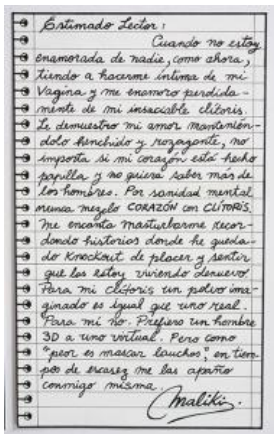 Estimado Lector:
Cuando no estoy
enamorada de nadie, como ahora,
tiendo a hacerme íntima de mi
Vagina y me enamoro perdida-
mente de mi insaciable clítoris.
Le demuestro mi amor mantenién-
dolo henchido y rozagante, no
importa si mi corazón está hecho
papilla y no quiera saber más de
los hombres. Por sanidad mental
nunca mezclo CORAZÓN con CLÍTORIS.
Me encanta masturbarme recor-
dando historias donde he queda-
do Knockout de placer y sentir
que las estoy viviendo denuevo.
Para mi clítoris un polvo ima-
ginado es igual que uno real.
Para mí no. Prefiero un hombre
3D a uno virtual. Pero como
"peor es mascar lauchas", en tiem-
pos de escasez me las apaño
conmigo misma.
Maliki.